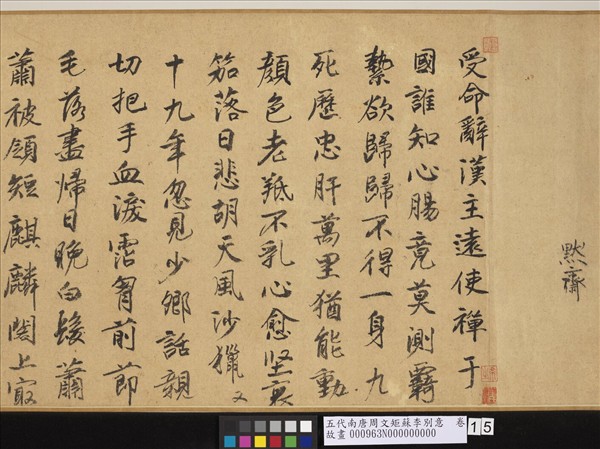 默齋
受命辭漢主遠使襌于
國誰知心腸竟莫測羈
縶欲歸歸不得一身九
死歷忠肝萬里猶能動
顏色老羝不乳心愈堅哀
笳落日悲胡天風沙獵又
十九年忽見少卿話親
切把手血淚霑胷前節
毛落盡歸日晚白髮蕭
蕭被領短麒麟閣上寂
五代南唐周文矩蘇李別意 卷
故畫 000963N000000000
15